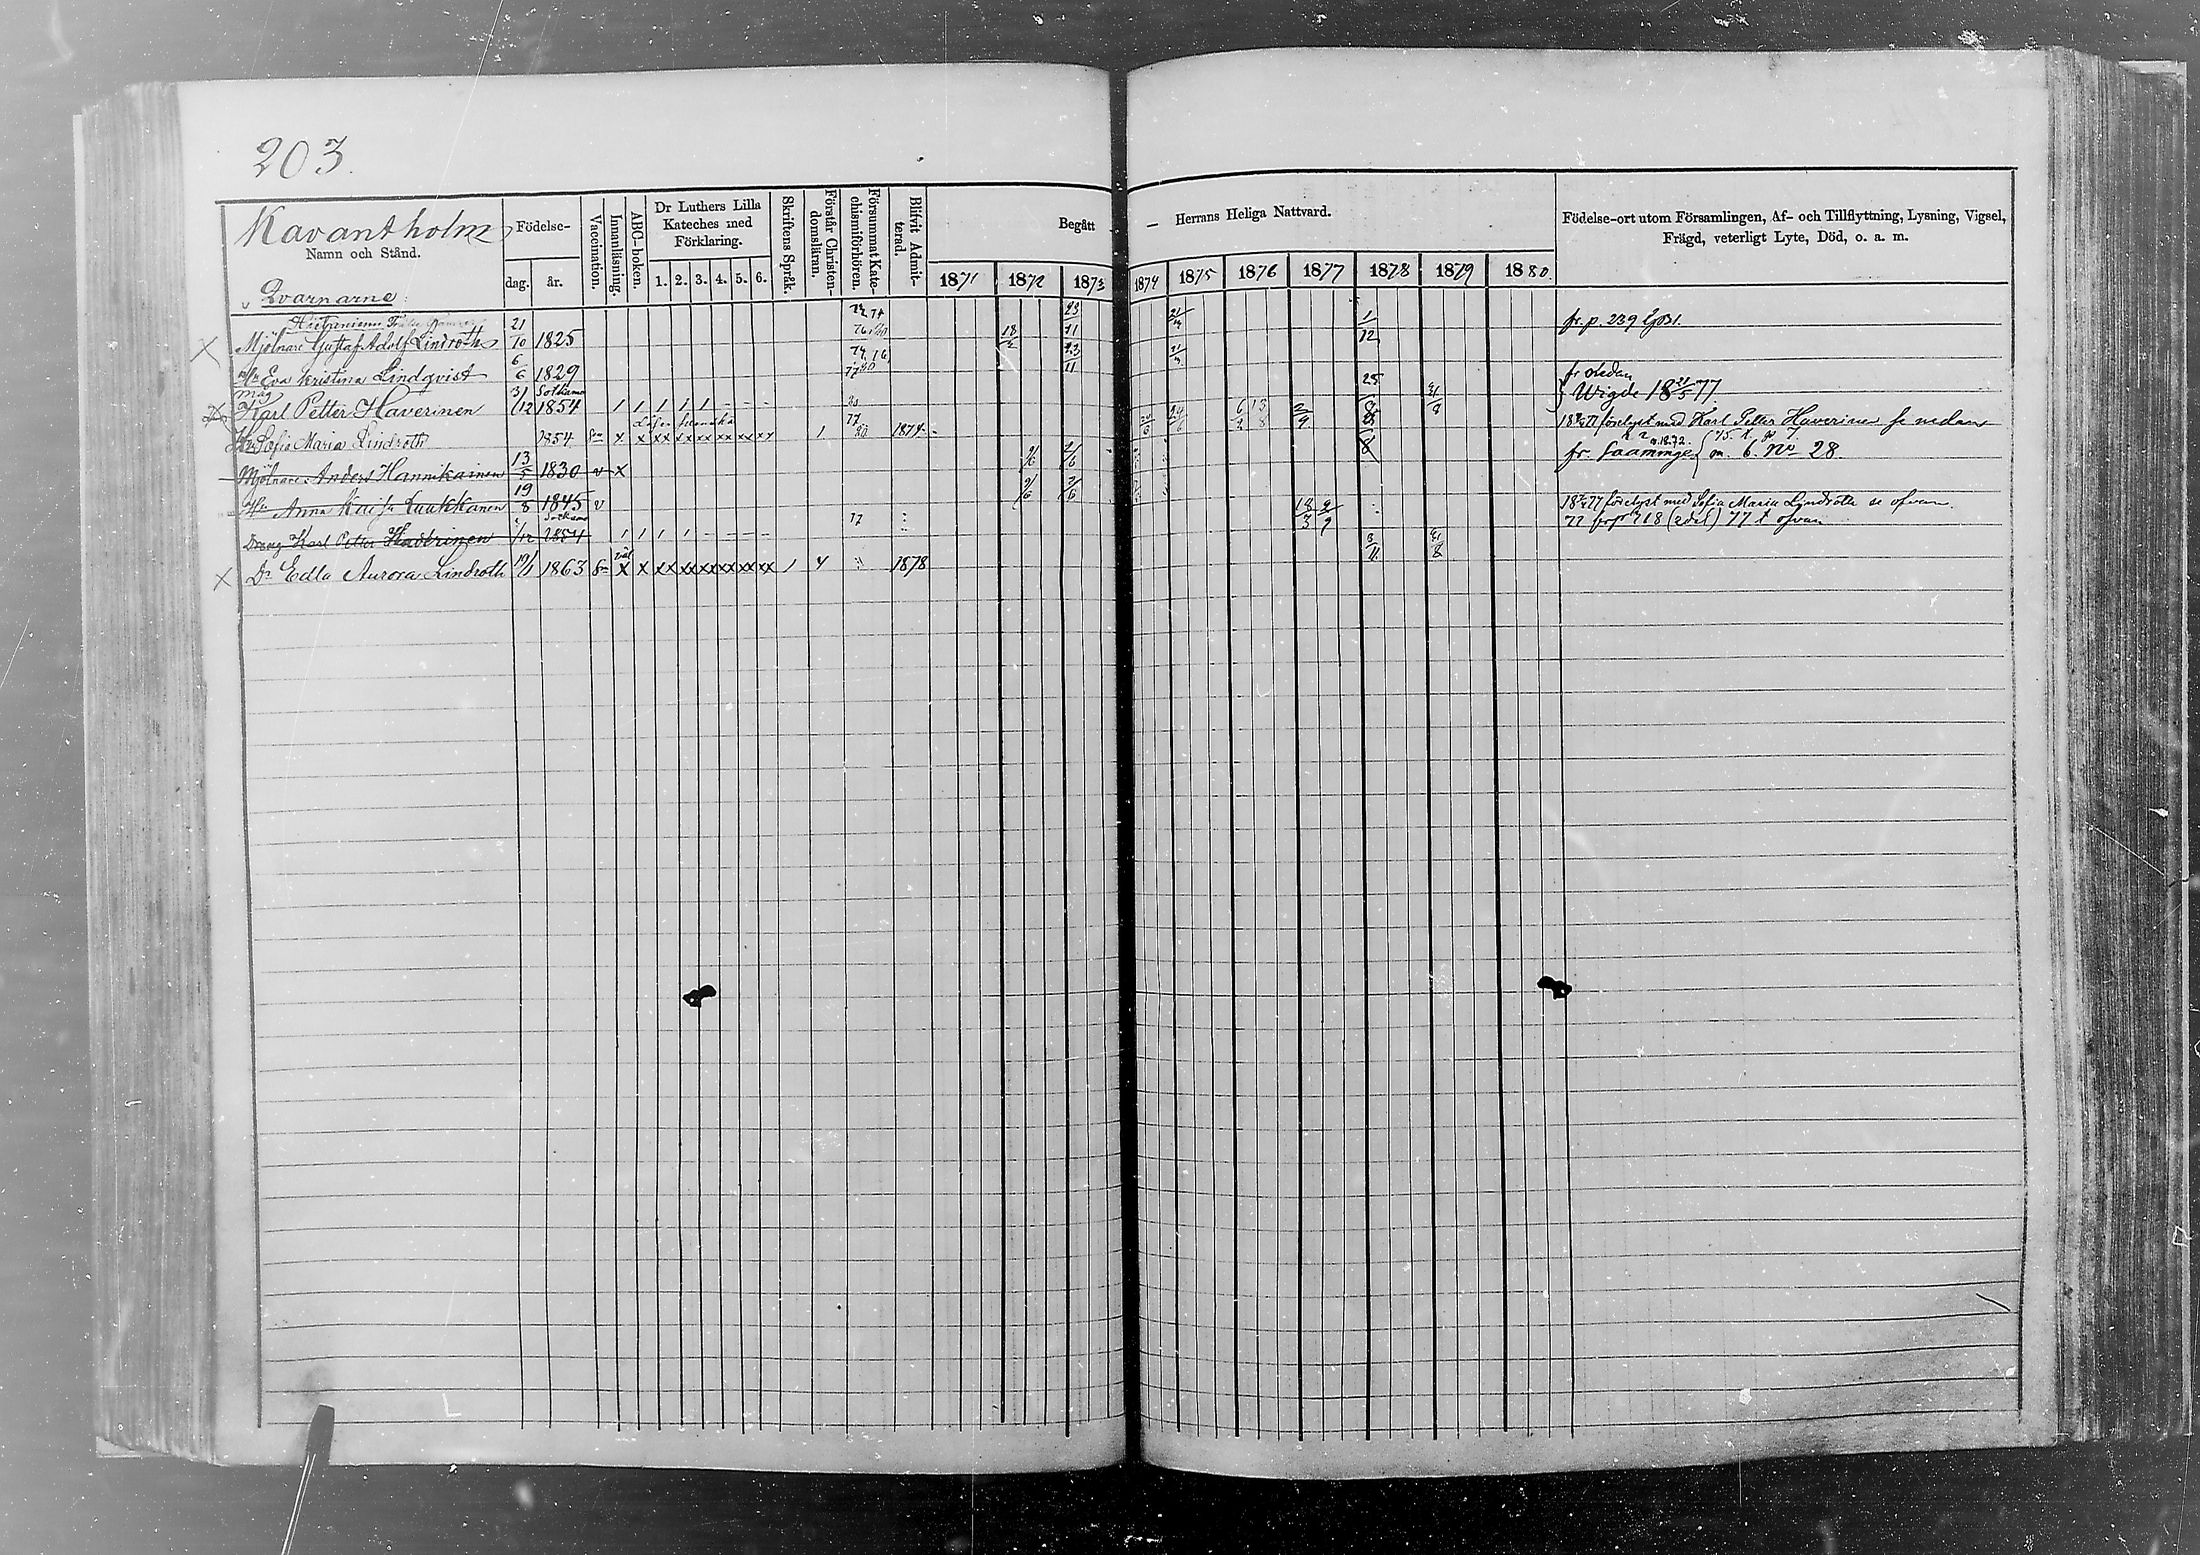 203.
Kavantholm
Namn och Stånd.
Qvarnarne:
Födelse-
dag. år.
Vaccination.
Innanläsning.
ABC-boken.
Dr Luthers Lilla
Kateches med
Förklaring.
1. 2. 3. 4. 5. 6.
Skriftens Språk.
Förstår Christen-
domsläran.
Försummat Kate-
chismiförhören.
Blifvit Admit-
terad.
Begått — Herrans Heliga Nattvard.
1871 1872 1873 1874 1875 1876 1877 1878 1879 1880.
Födelse-ort utom Församlingen, Af- och Tillflyttning, Lysning, Vigsel,
Frägd, veterligt Lyte, Död, o. a. m.
Mjölnare Gustaf Adolf Lindroth 21/10 1825 18 23/11 21/3 1/12 fr. p. 239
Eva Kristina Lindqvist 6/6 1829 23/11 21/3
Måg
Karl Petter Haverinen 31/12 1854 1 1 1 1 1 - - - 25 Wigde 18 21/5 77
Läser svenska
Sofia Maria Lindroth 1854 x x xx xx xx xx xx xx 1 1874 förelyst med Karl Petter Haverinen se nedan
Mjölnare Anders Hannikainen 13/5 1830 v x 2/6 2/6 fr. m. 6. No 28
Hu Anna Kaisa Luukkanen 19/8 1845 v 2/6 2/6
Dräng Karl Petter Haverinen 1/12 1854 1 1 1 1 - - - - 77 18/3 2/9 förelyst med Sofia Maria Lindroth se ofvan.
77 t ofvan
Dr Edla Aurora Lindroth 19/1 1863 x x xx xx xx xx xx xx 1 4 1878 3/11 31/8